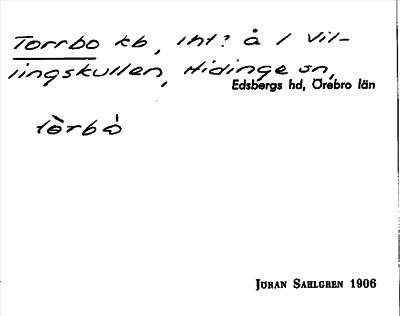 Torrbo kb, int? å 1 Vil-
lingskullen, Hidinge sn,
Edsbergs hd, Örebro län
tòrbȯ
JÖRAN SAHLGREN 1906